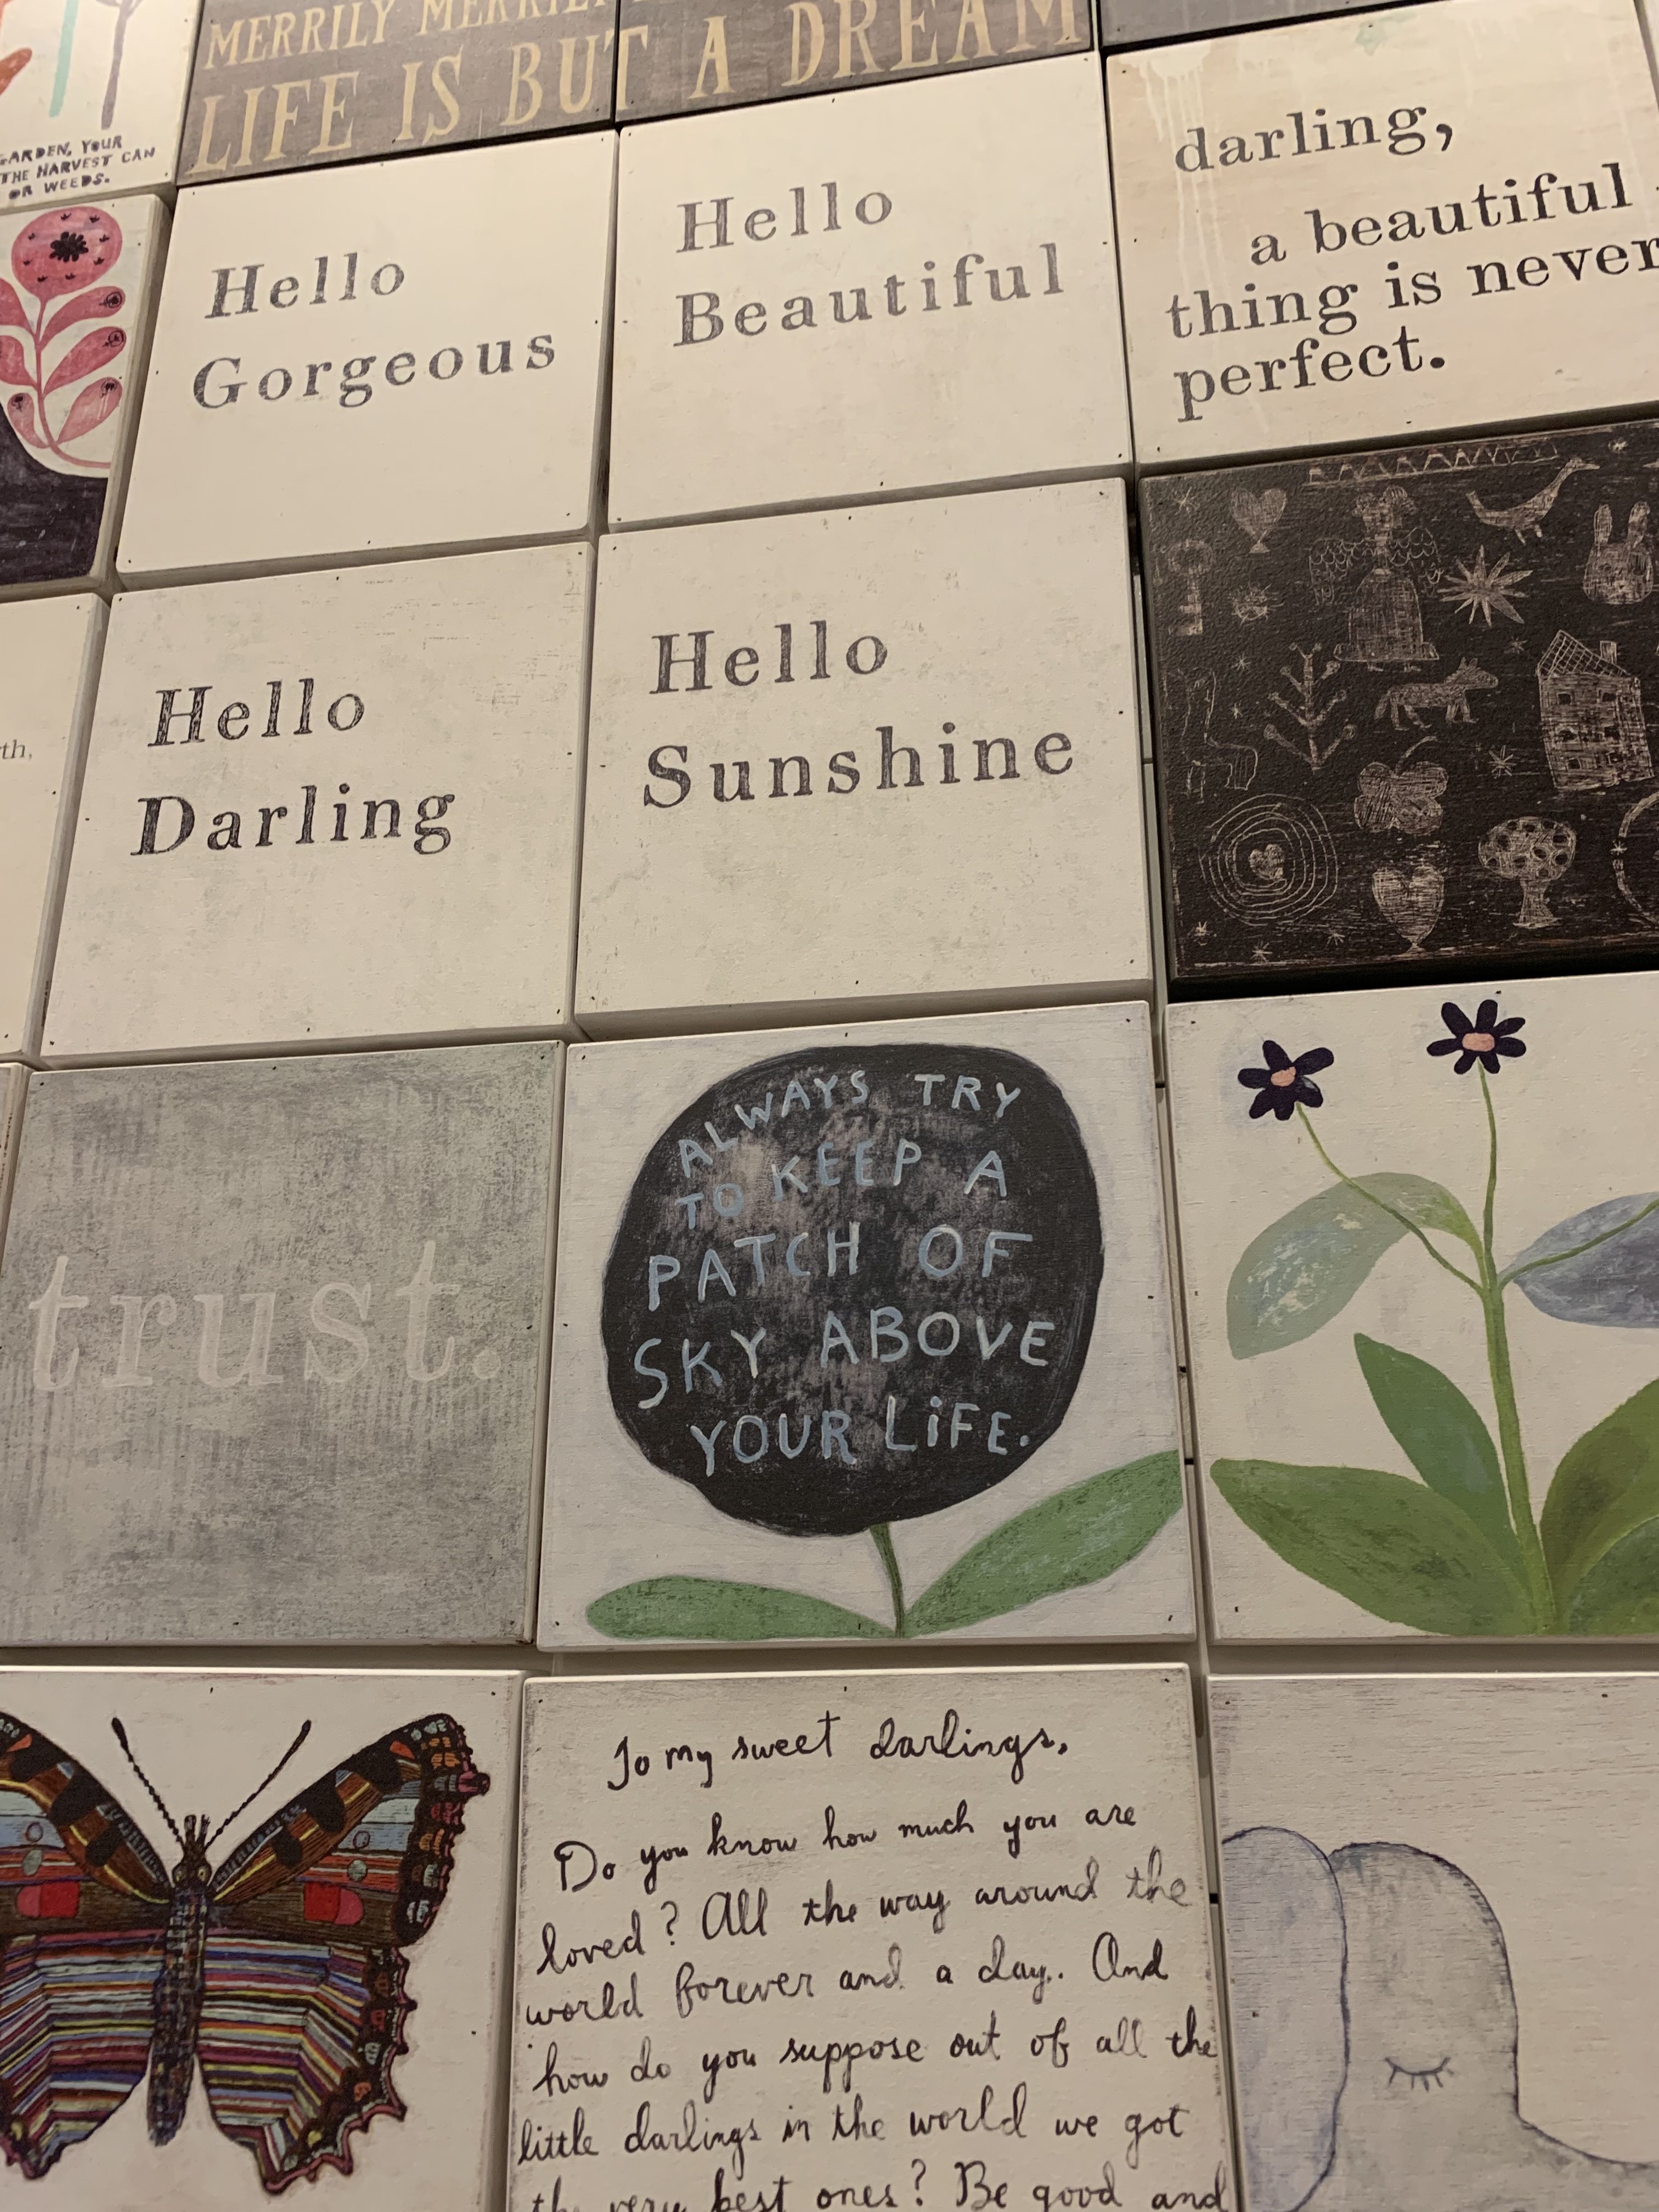 MERRILY MERRILY
LIFE IS BUT A DREAM
GARDEN, YOUR
THE HARVEST CAN
OR WEEDS.
Hello
Gorgeous
Hello
Beautiful
darling,
a beautiful
thing is never
perfect.
Hello
Darling
Hello
Sunshine
trust.
ALWAYS TRY
TO KEEP A
PATCH OF
SKY ABOVE
YOUR LiFE.
To my sweet darlings,
Do you know how much you are
loved? All the way around the
world forever and a day. And
how do you suppose out of all the
little darlings in the world we got
the very best ones? Be good and